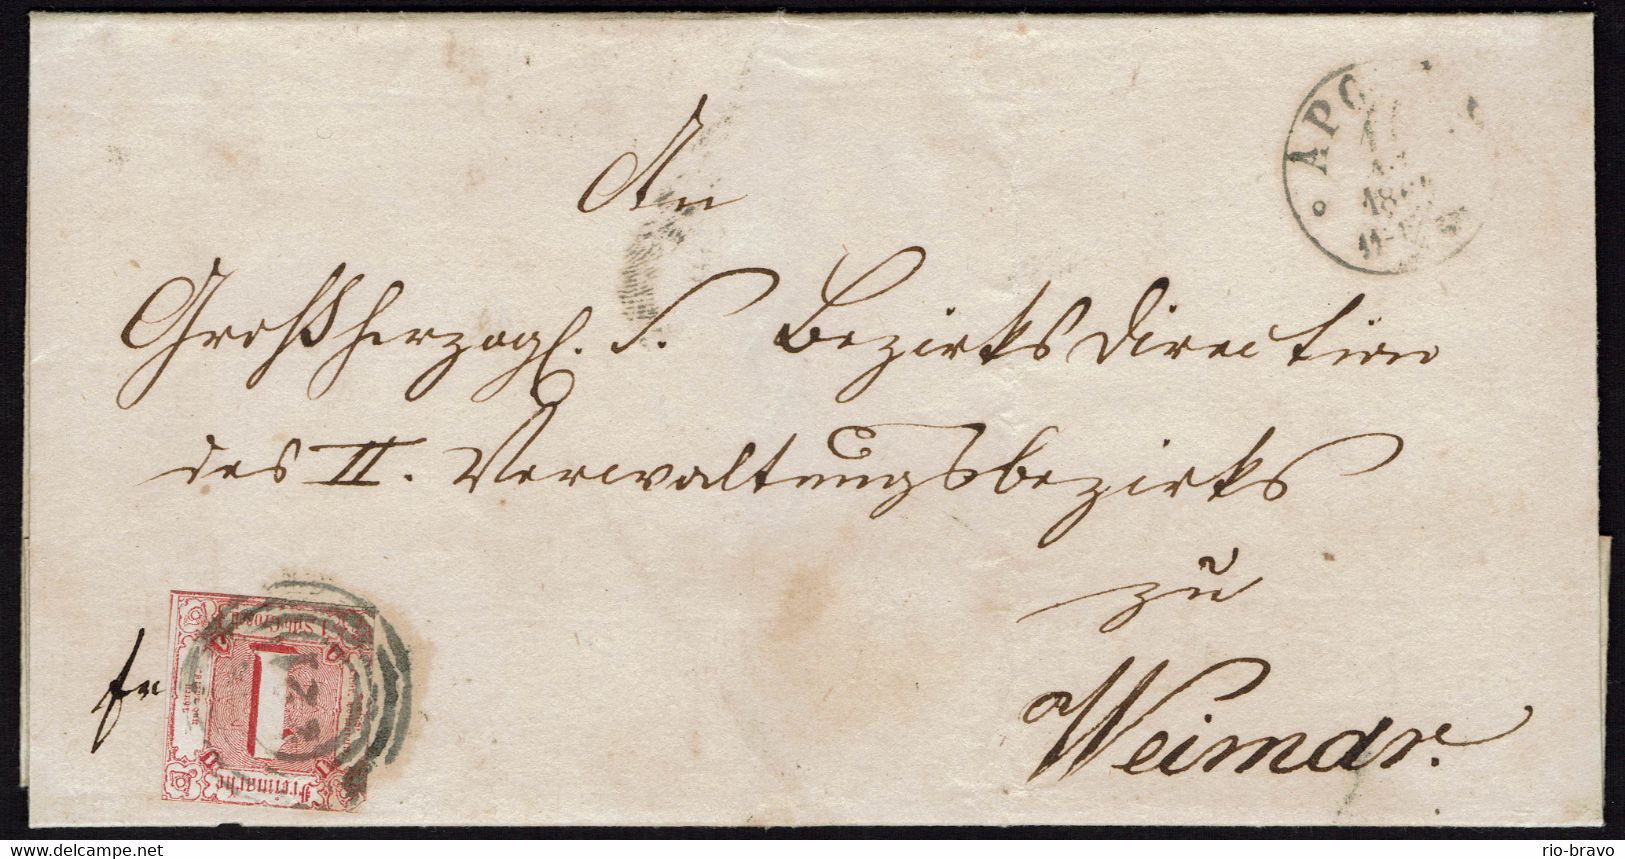 APO
18
An
Großherzogl. S. Bezirksdirection
des II. Verwaltungsbezirks
zu
Weimar.
fr
1 Silb. Grosch.
Freimarke
delcampe.net
rio-bravo